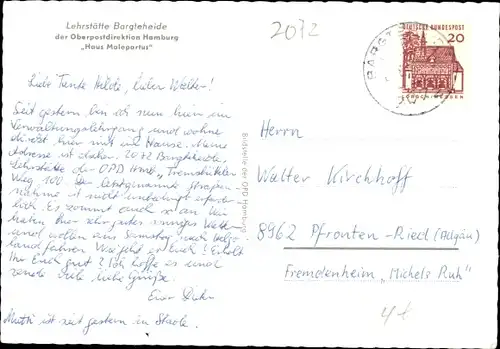 Lehrstätte Bargteheide
der Oberpostdirektion Hamburg
„Haus Malepartus"
2072
DEUTSCHE BUNDESPOST
20
BARGTE
Liebe Tante Hilde, lieber Walter!
Seit gestern bin ich nun hier im
Verwaltungslehrgang und wohne
direkt hier mit im Hause. Meine
Adresse ist daher: 2072 Bargteheide,
Lehrstätte der OPD Hmb, Tremsbütteler
Weg 100. Die letztgenannte Straßen-
nahme ist nicht unbedingt erforder-
lich. Es kommt auch so an. Wir
haben hier sehr gutes Wetter
und wollen am Sonntag nach Helgo-
land fahren. Wie geht es Euch? Erholt
Ihr Euch gut? Ich hoffe es und
sende viele liebe Grüße.
Euer
Mutti ist seit gestern in
Bildstelle der OPD Hamburg
Herrn
Walter Kirchhoff
8962 Pfronten-Ried (Allgäu)
Fremdenheim „Michels Ruh"